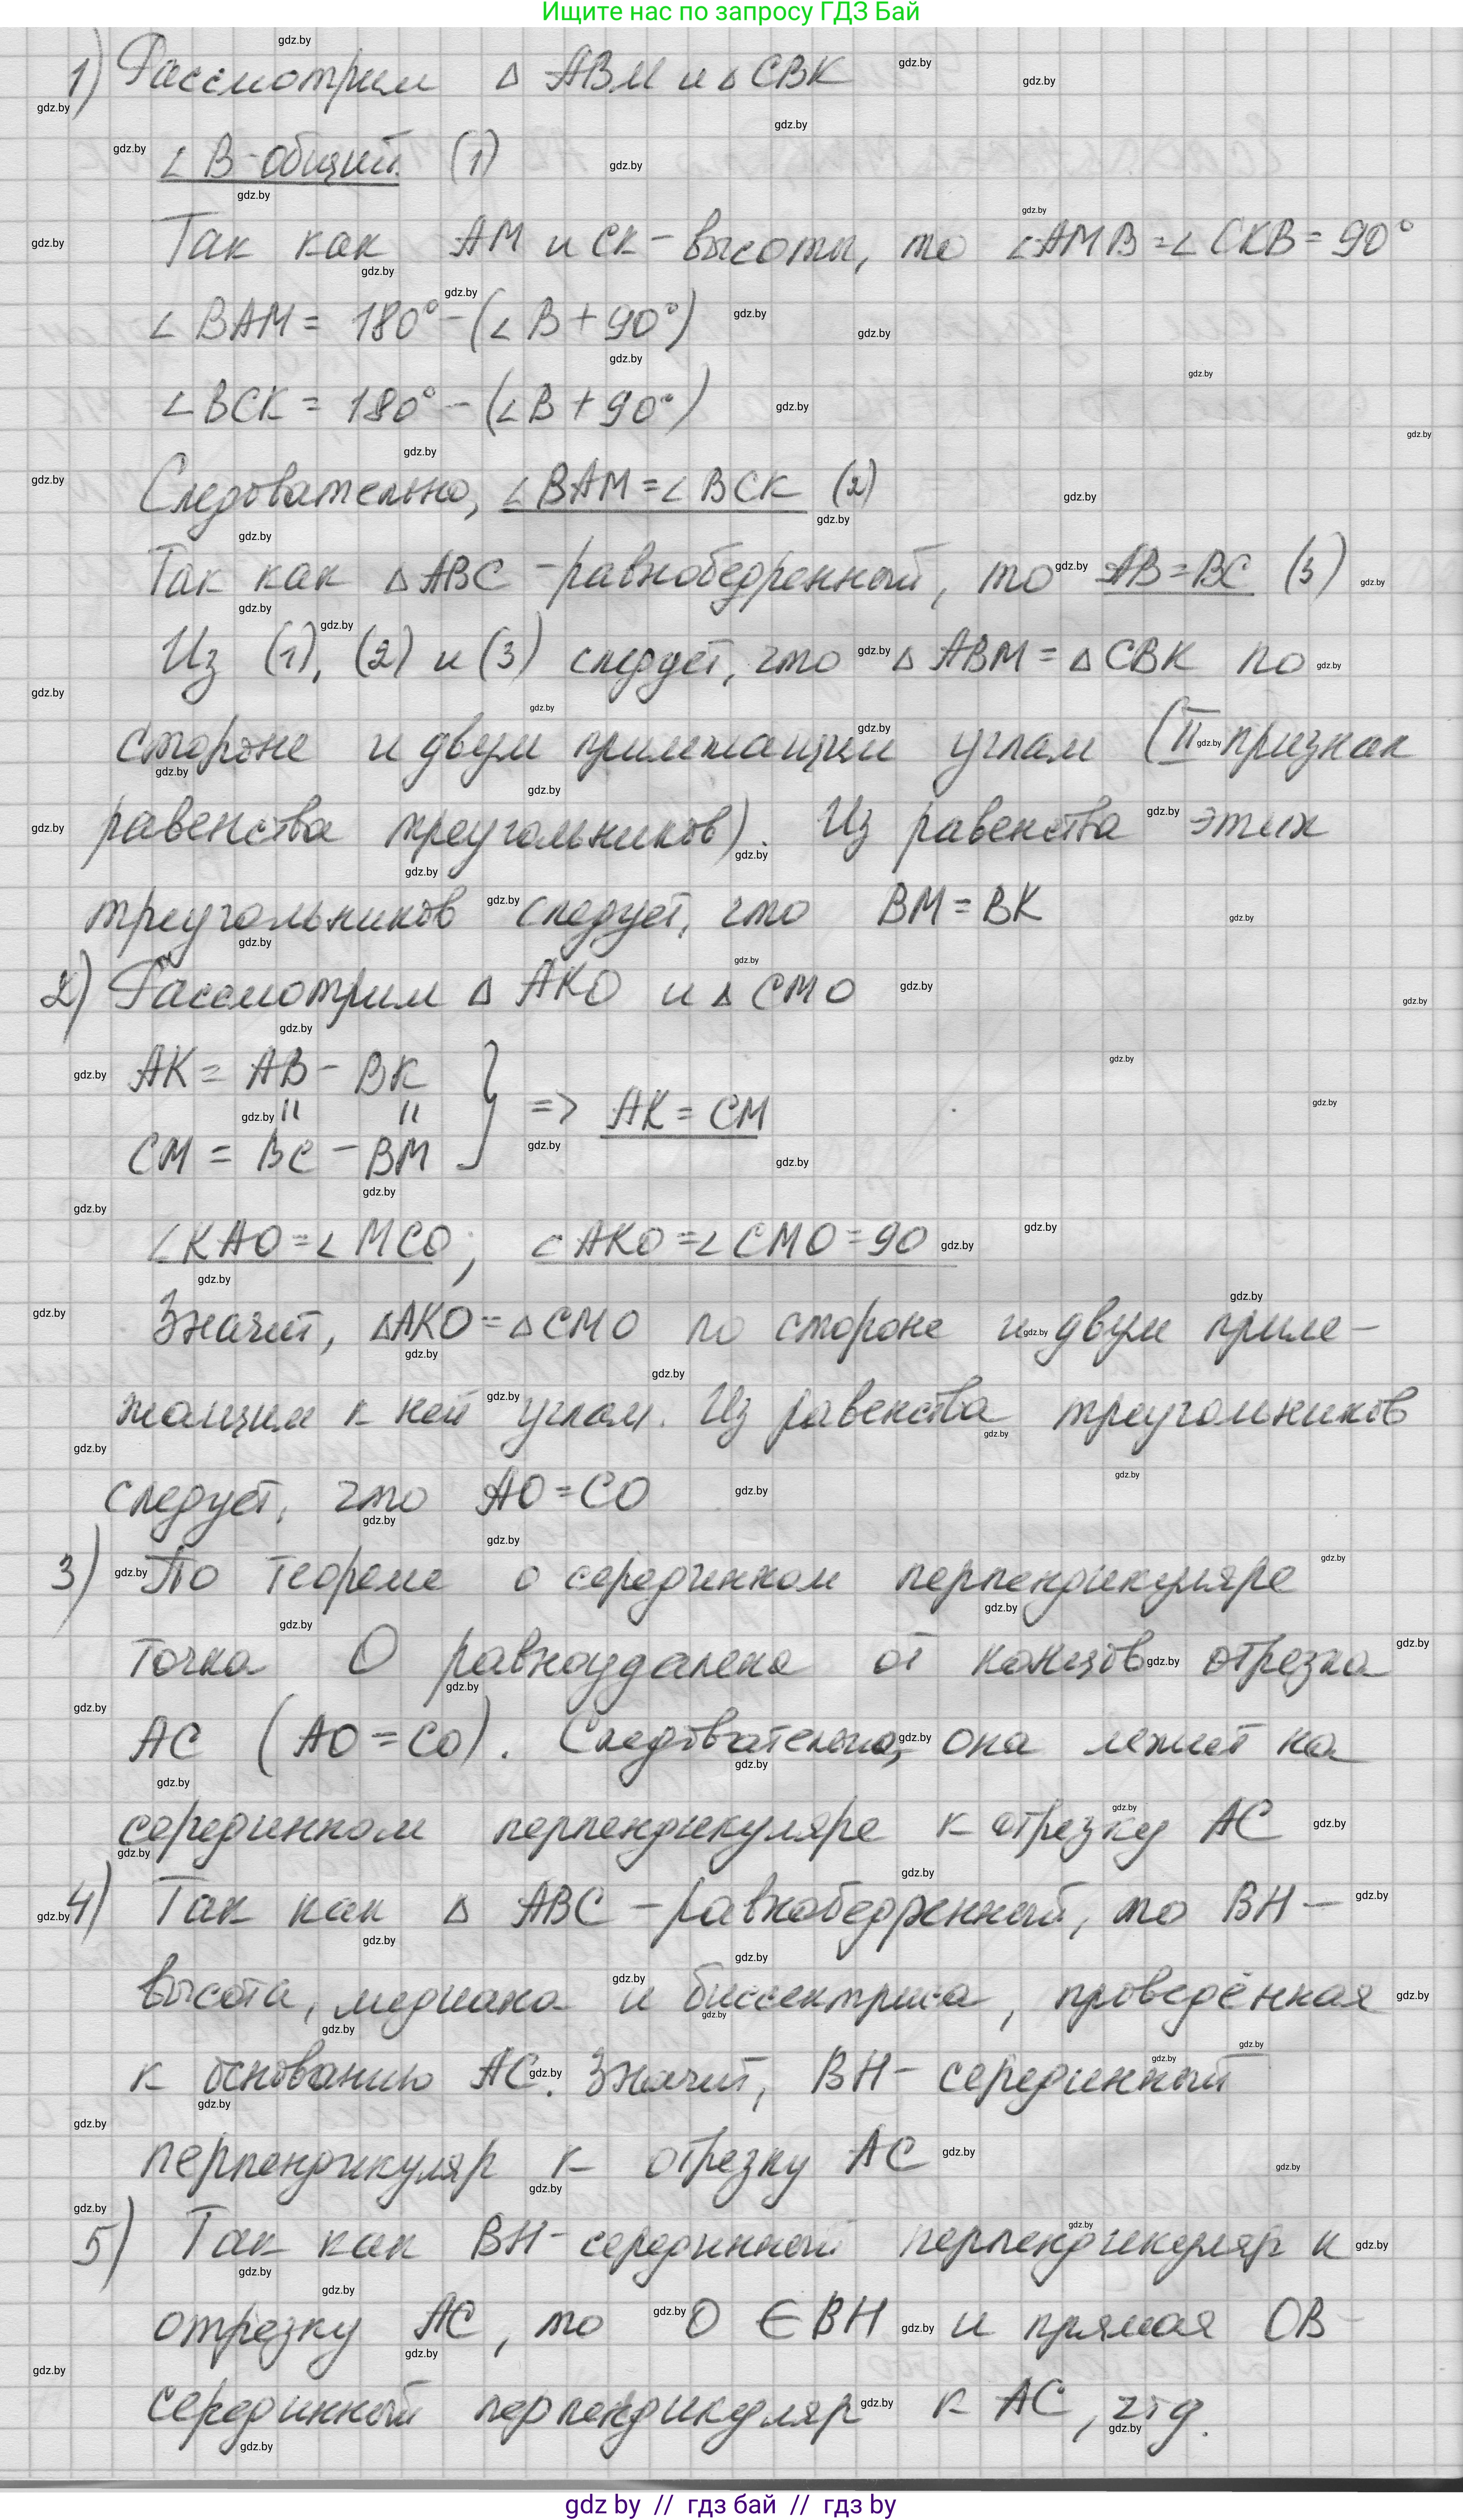 Ищите нас по запросу ГДЗ Бай
1) Рассмотрим △ ABM и △ CBK
∠ B - общий (1)
Так как AM и CK - высоты, то ∠AMB = ∠ CKB = 90°
∠ BAM = 180° - (∠ B + 90°)
∠ BCK = 180° - (∠ B + 90°)
Следовательно, ∠ BAM = ∠ BCK (2)
Так как △ ABC - равнобедренный, то AB = BC (3)
Из (1), (2) и (3) следует, что △ ABM = △ CBK по
стороне и двум прилежащим углам (II признак
равенства треугольников). Из равенства этих
треугольников следует, что BM = BK
2) Рассмотрим △ AKO и △ CMO
AK = AB - BK
CM = BC - BM } => AK = CM
∠ KAO = ∠ MCO; ∠ AKO = ∠ CMO = 90
Значит, △AKO = △ CMO по стороне и двум приле-
жащим к ней углам. Из равенства треугольников
следует, что AO = CO
3) По теореме о серединном перпендикуляре
точка O равноудалена от концов отрезка
AC (AO = CO). Следовательно, она лежит на
серединном перпендикуляре к отрезку AC
4) Так как △ ABC - равнобедренный, то BH -
высота, медиана и биссектриса, проведённая
к основанию AC. Значит, BH - серединный
перпендикуляр к отрезку AC
5) Так как BH - серединный перпендикуляр к
отрезку AC, то O ∈ BH и прямая OB -
серединный перпендикуляр к AC, чтд.
gdz by // гдз бай // гдз by